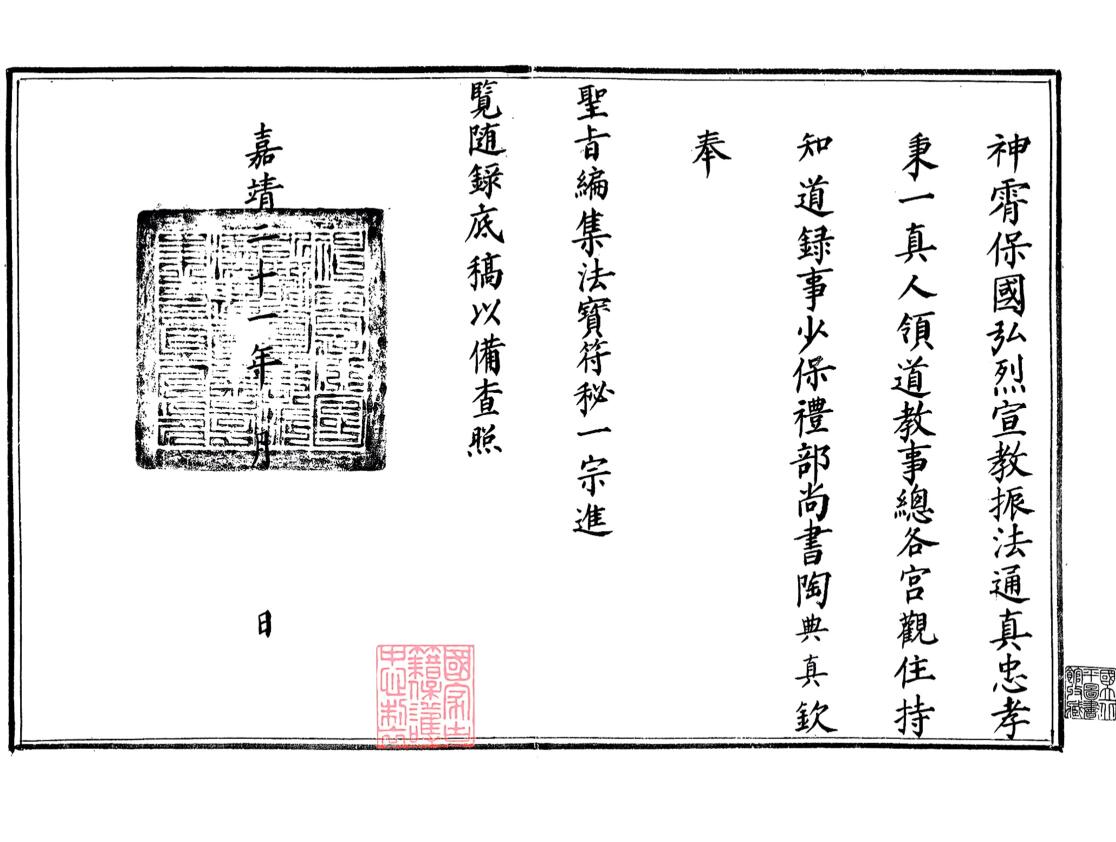 神霄保國弘烈宣教振法通真忠孝
秉一真人領道教事總各宮觀住持
知道録事少保禮部尚書陶典真欽
奉
聖旨編集法寶符秘一宗進
覽随録底稿以備查照
嘉靖二十一年 月 日
國家古籍保護中心制